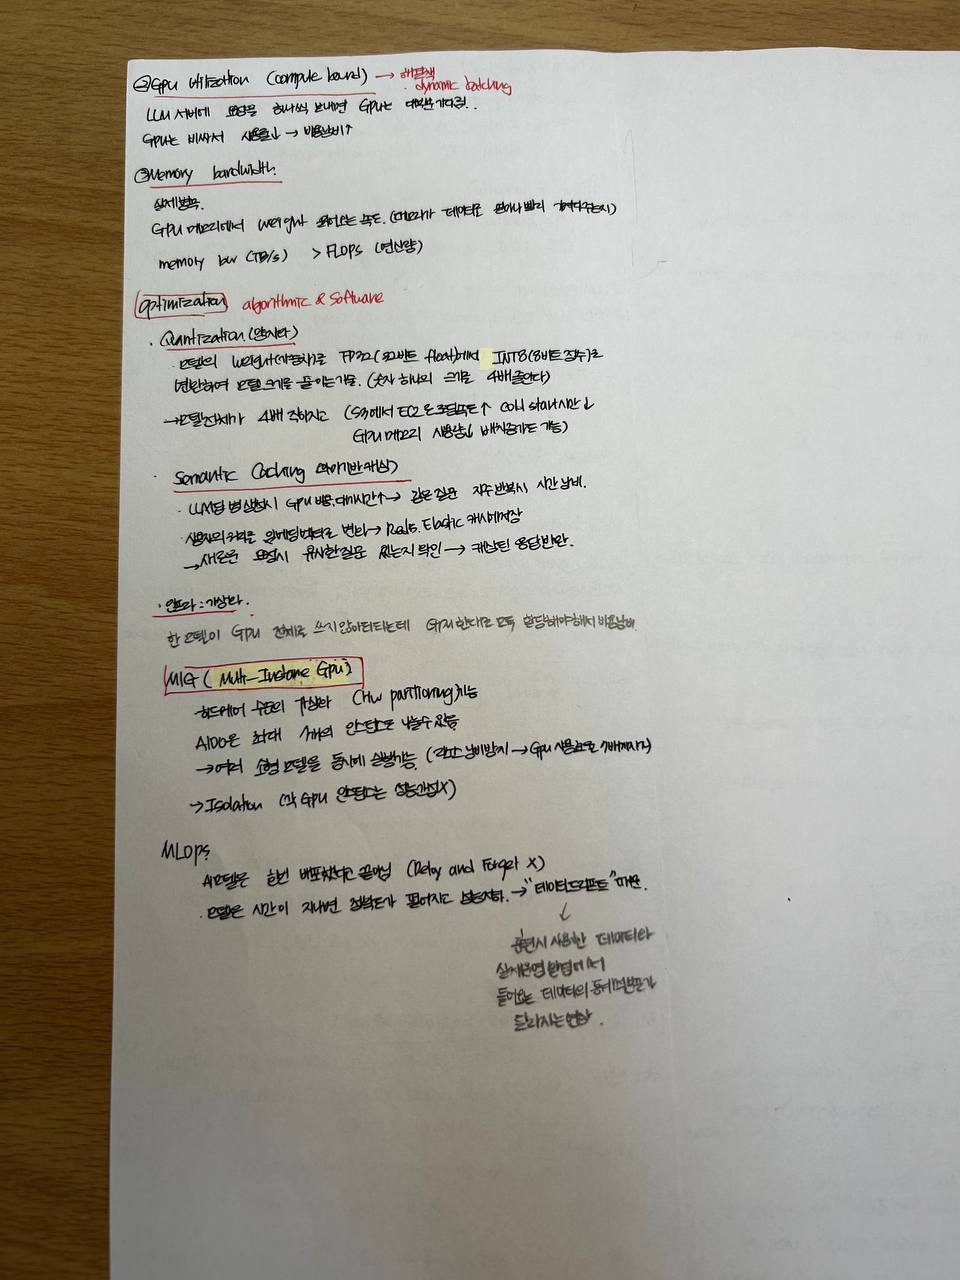 ② GPU Utilization (compute bound) → 해결책
· dynamic batching
LLM 서버에 요청을 하나씩 보내면 GPU는 대부분 기다림..
GPU는 비싸서 사용률↓ → 비용낭비↑
③ Memory bandwidth.
실제병목.
GPU 메모리에서 weight 읽어오는 속도. (메모리가 데이터를 얼마나 빨리 가져다주는지)
memory bw (TB/s) > FLOPS (연산량)
Optimization algorithmic & Software
· Quantization (양자화)
· 모델의 weight(가중치)를 FP32(32비트 float)에서 INT8(8비트 정수)로
변환하여 모델 크기를 줄이는기술. (숫자 하나의 크기를 4배줄인다)
→ 모델전체가 4배 작아지고 (S3에서 EC2로 로딩속도↑ cold start시간↓
GPU메모리 사용량↓ 배치증가도 가능)
· Semantic Caching (의미기반캐싱)
· LLM답변생성시 GPU비용, 대기시간↑ → 같은 질문 자주반복시 시간낭비.
· 사용자의 쿼리를 임베딩벡터로 변환 → Redis, Elastic 캐시에저장
→ 새로운 요청시 유사한질문 있는지 확인 → 캐싱된 응답반환.
· 인프라 : 가상화.
한 모델이 GPU 전체를 쓰지 않아도되는데 GPU 한대를 모두 할당해야해서 비용낭비.
MIG (Multi-Instance GPU)
하드웨어 수준의 가상화 (HW partitioning)기능
A100은 최대 7개의 인스턴스로 나눌수 있음
→ 여러 소형 모델을 동시에 실행가능. (리소스 낭비방지 → GPU 사용효율 7배까지)
→ Isolation (각 GPU 인스턴스는 성능간섭X)
MLOps
AI모델은 한번 배포했다고 끝아님 (Deploy and Forget X)
· 모델은 시간이 지나면 정확도가 떨어지고 성능저하. → "데이터드리프트" 때문.
↓
훈련시 사용한 데이터와
실제운영환경에서
들어오는 데이터의 통계적분포가
달라지는현상.